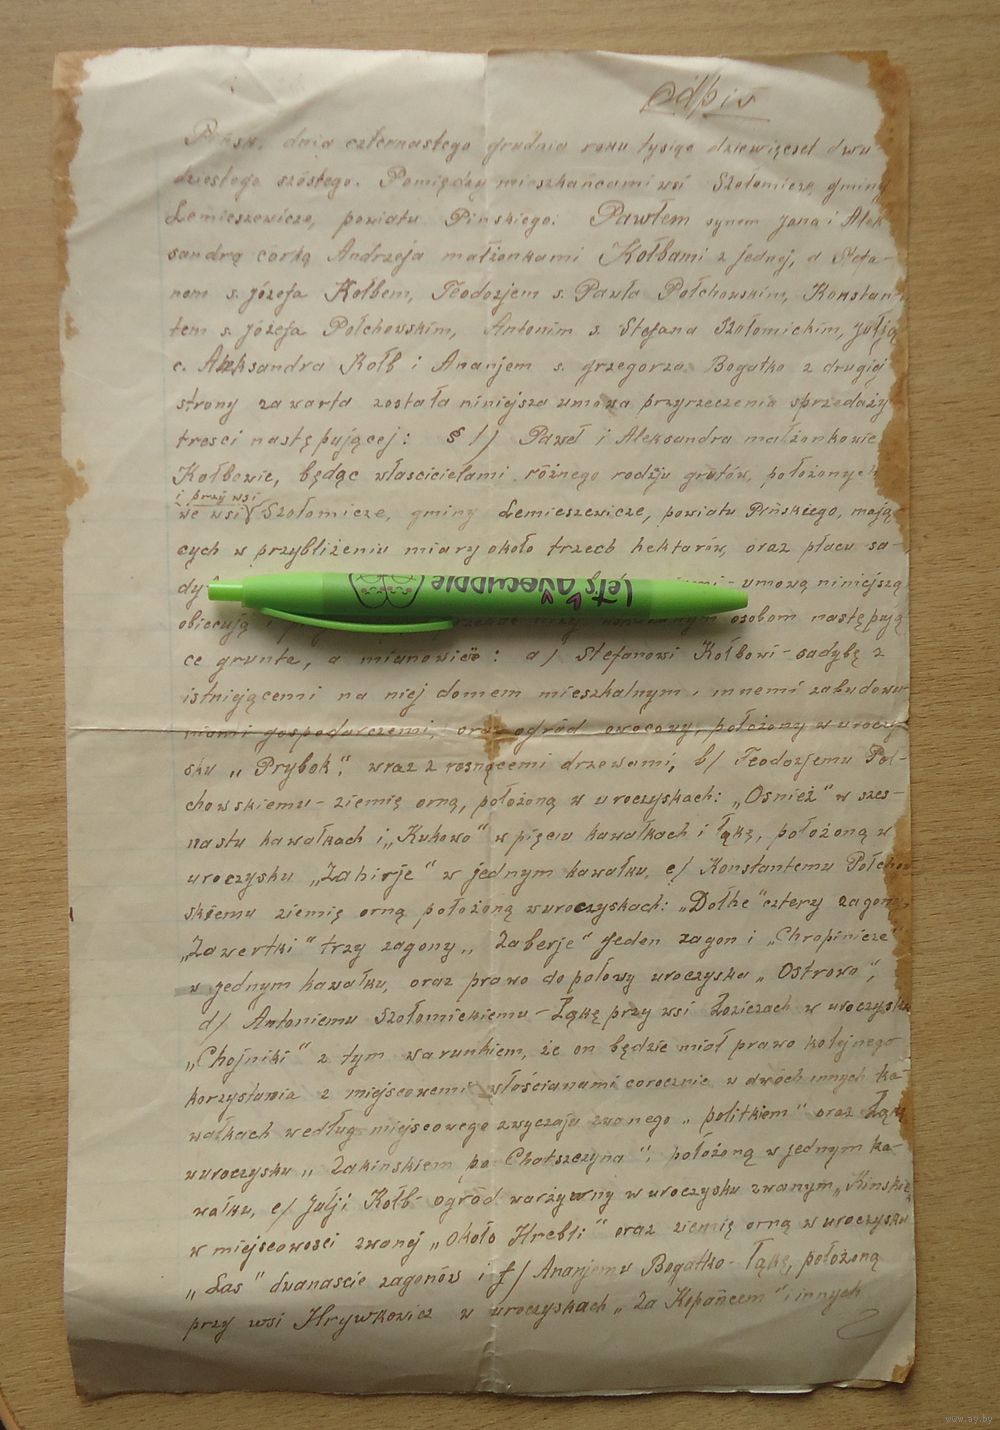 Odpis
Pińsk, dnia czternastego grudnia roku tysiąc dziewięćset dwu-
dziestego szóstego. Pomiędzy mieszkańcami wsi Szołomicze, gminy
Lemieszewicze, powiatu Pińskiego: Pawłem synem Jana i Alek
sandrą córką Andrzeja małżonkami Kołbami z jednej, a Stefa-
nem s. Józefa Kołbem, Teodozjem s. Pawła Połchowskim, Konstan
tem s. Józefa Połchowskim, Antonim s. Stefana Szołomickim, Julją
c. Aleksandra Kołb i Ananjem s. Grzegorza Bogatko z drugiej
strony zawarta została niniejsza umowa przyrzeczenia sprzedaży
treści następującej: § 1/ Paweł i Aleksandra małżonkowie
Kołbowie, będąc właścicielami różnego rodzju grutów, położonych
i przy wsi
we wsi Szołomicze, gminy Lemieszewicze, powiatu Pińskiego, mają-
cych w przybliżeniu miary około trzech hektarów oraz placu sa-
dy umową niniejszą
Let's avecuddle
obiecują i osobom następują
ce grunta, a mianowicie: a/ Stefanowi Kołbowi - sadybę z
istniejącemi na niej domem mieszkalnym i innemi zabudowa
niami gospodarczemi, oraz ogród owocowy, położony w uroczy-
sku „Prybok”, wraz z rosnącemi drzewami, b/ Teodozjemu Poł-
chowskiemu - ziemię orną, położoną w uroczyskach: „Osnież” w szes-
nastu kawałkach i „Kukowo” w pięciu kawałkach i łąkę, położoną w
uroczysku „Zahirje” w jednym kawałku, c/ Konstantemu Połchow
skiemu ziemię orną położoną w uroczyskach: „Dołhe” cztery zagony,
„Zawertki” trzy zagony, „Zaberje” jeden zagon i „Chropinicze”
w jednym kawałku, oraz prawo do połowy uroczyska „Ostrowo”,
d/ Antoniemu Szołomickiemu - Łąkę przy wsi Łoziczach w uroczysku
„Chojniki” z tym warunkiem, że on będzie miał prawo kolejnego
korzystania z miejscowemi włościanami corocznie w dwóch innych ka-
wałkach według miejscowego zwyczaju zwanego „politkiem” oraz Łąkę
w uroczysku „Zakinskiem po Chotszczyna”, położoną w jednym ka-
wałku, e/ Julji Kołb ogród warzywny w uroczysku zwanym „Kinskie
w miejscowości zwanej „Około Hrebli” oraz ziemię orną w uroczysku
„Las” dwanascie zagonów i f/ Ananjemu Bogatko - łąkę, położoną
przy wsi Hrywkowicz w uroczyskach „Za Kopańcem” i innych
www.ay.by